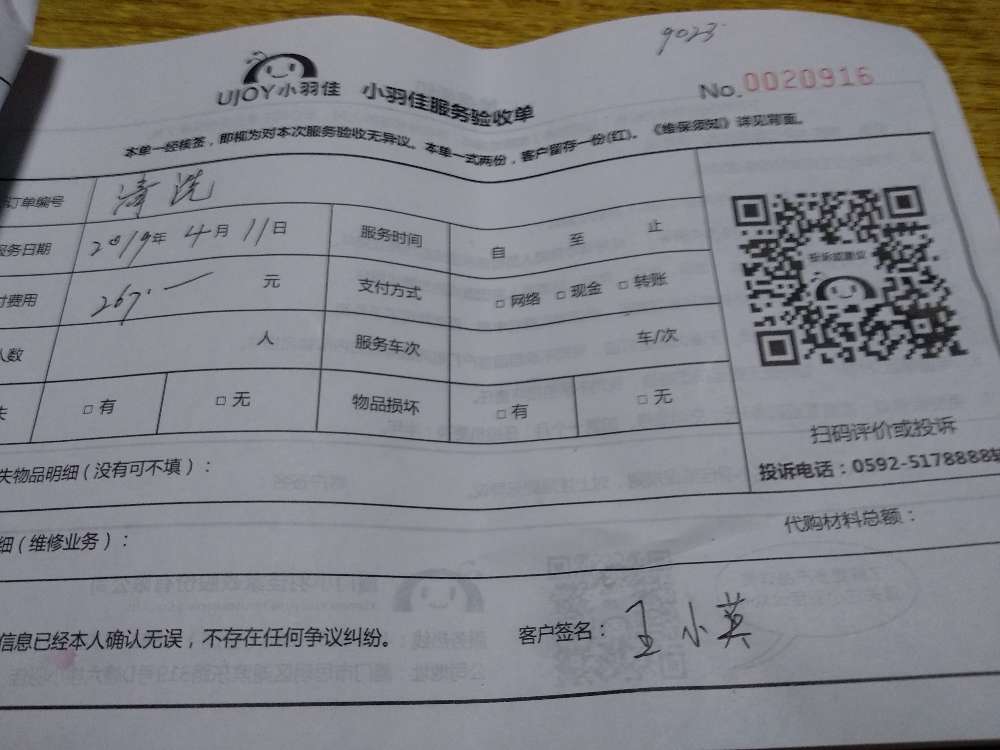 9023
UJOY小羽佳 小羽佳服务验收单 No.0020916
本单一经核签，即视为对本次服务验收无异议。本单一式两份，客户留存一份(红)。《维保须知》详见背面。
订单编号 清洗
服务日期 2019年 4月 11日 服务时间 自 至 止
付费用 267.一 元 支付方式 □网络 □现金 □转账
人数 人 服务车次 车/次
失 □有 □无 物品损坏 □有 □无
投诉或建议
扫码评价或投诉
投诉电话：0592-5178888转
失物品明细(没有可不填)：
代购材料总额：
细(维修业务)：
信息已经本人确认无误，不存在任何争议纠纷。 客户签名：王小英